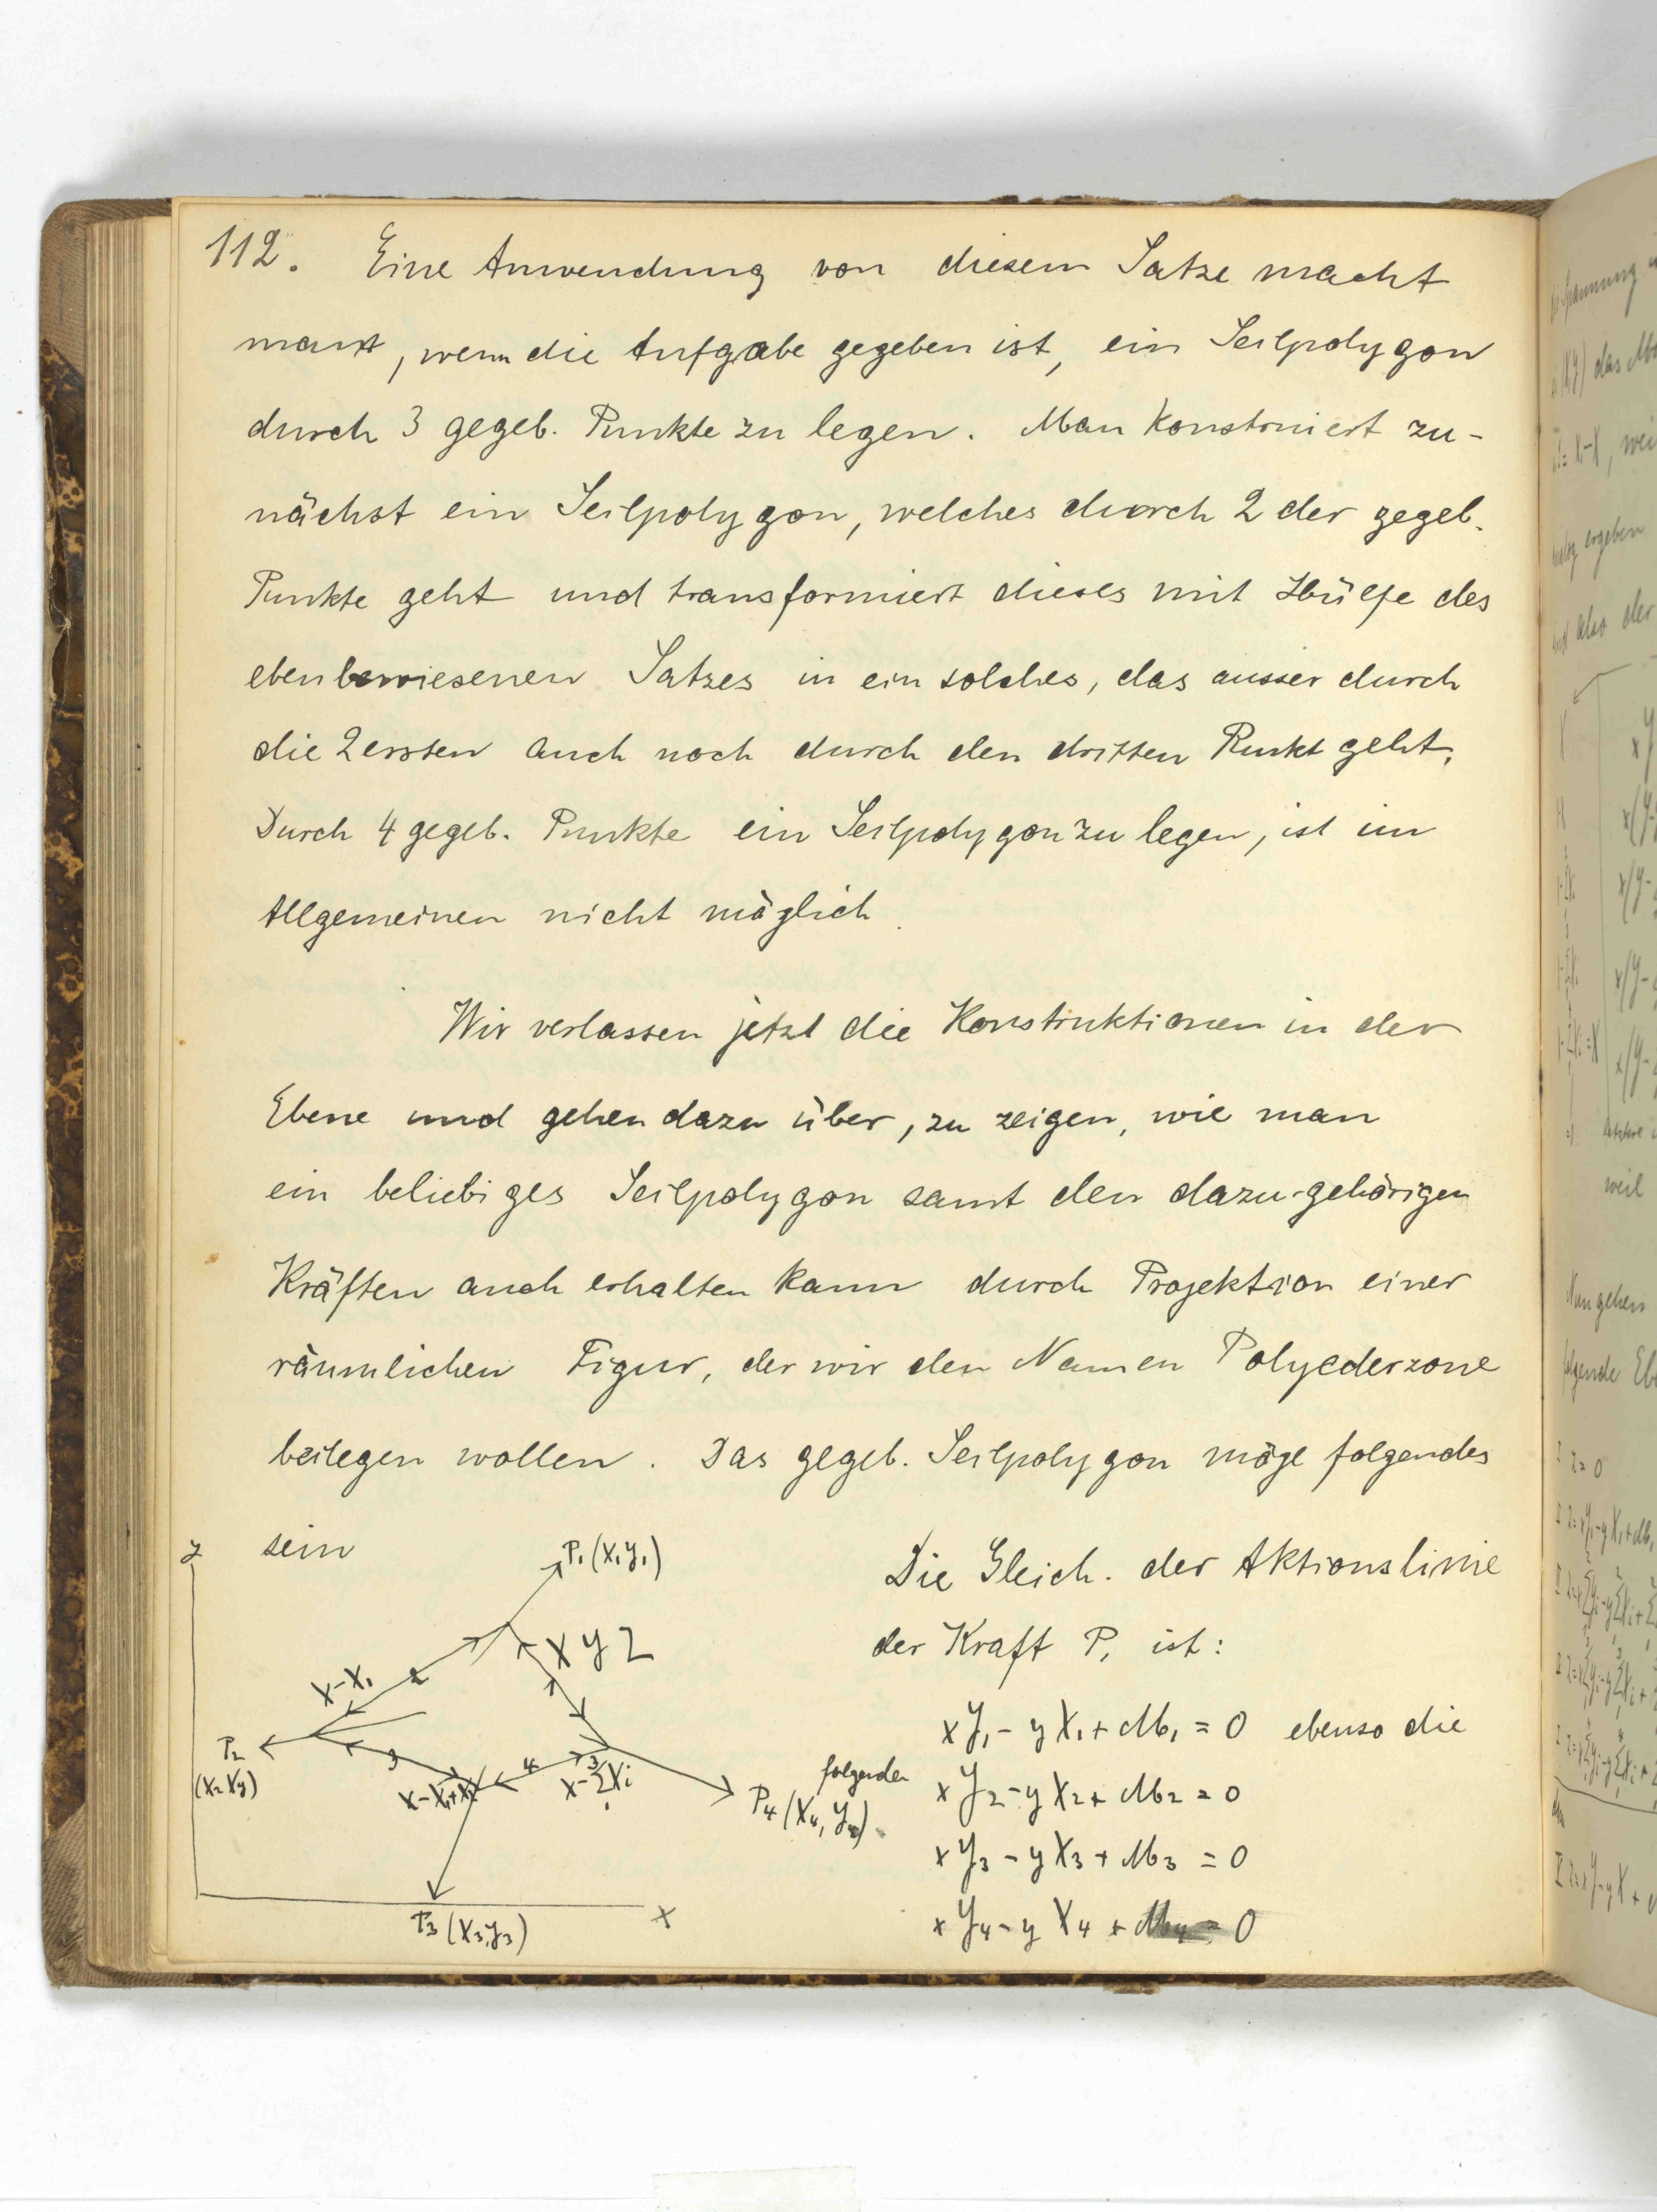 112. Eine Anwendung von diesem Satze macht
man, wenn die Aufgabe gegeben ist, ein Seilpolygon
durch 3 gegeb. Punkte zu legen. Man Konstruiert zu-
nächst ein Seilpolygon, welches durch 2 der gegeb.
Punkte geht und transformiert dieses mit Hülfe des
eben bewiesenen Satzes in ein solches, das ausser durch
die 2 ersten auch noch durch den dritten Punkt geht.
Durch 4 gegeb. Punkte ein Seilpolygon zu legen, ist im
Allgemeinen nicht möglich.
Wir verlassen jetzt die Konstruktionen in der
Ebene und gehen dazu über, zu zeigen, wie man
ein beliebiges Seilpolygon samt den dazu gehörigen
Kräften auch erhalten kann durch Projektion einer
räumlichen Figur, der wir den Namen Polyederzone
beilegen wollen. Das gegeb. Seilpolygon möge folgendes
sein
y
P₁ (X₁ Y₁)
X Y Z
X-X₁
2
P₂
(X₂ Xy)
3
4
X-X₁+X₂
X-Σ³₁Xi
P₄ (X₄, Y₄)
P₃ (X₃, Y₃)
x
Die Gleich. der Aktionslinie
der Kraft P₁ ist:
xY₁ - yX₁ + M₁ = 0 ebenso die
folgenden xY₂ - yX₂ + M₂ = 0
xY₃ - yX₃ + M₃ = 0
xY₄ - yX₄ + M₄ = 0
Spannung
das
ergeben
also der
weil
Nun gehen
folgende